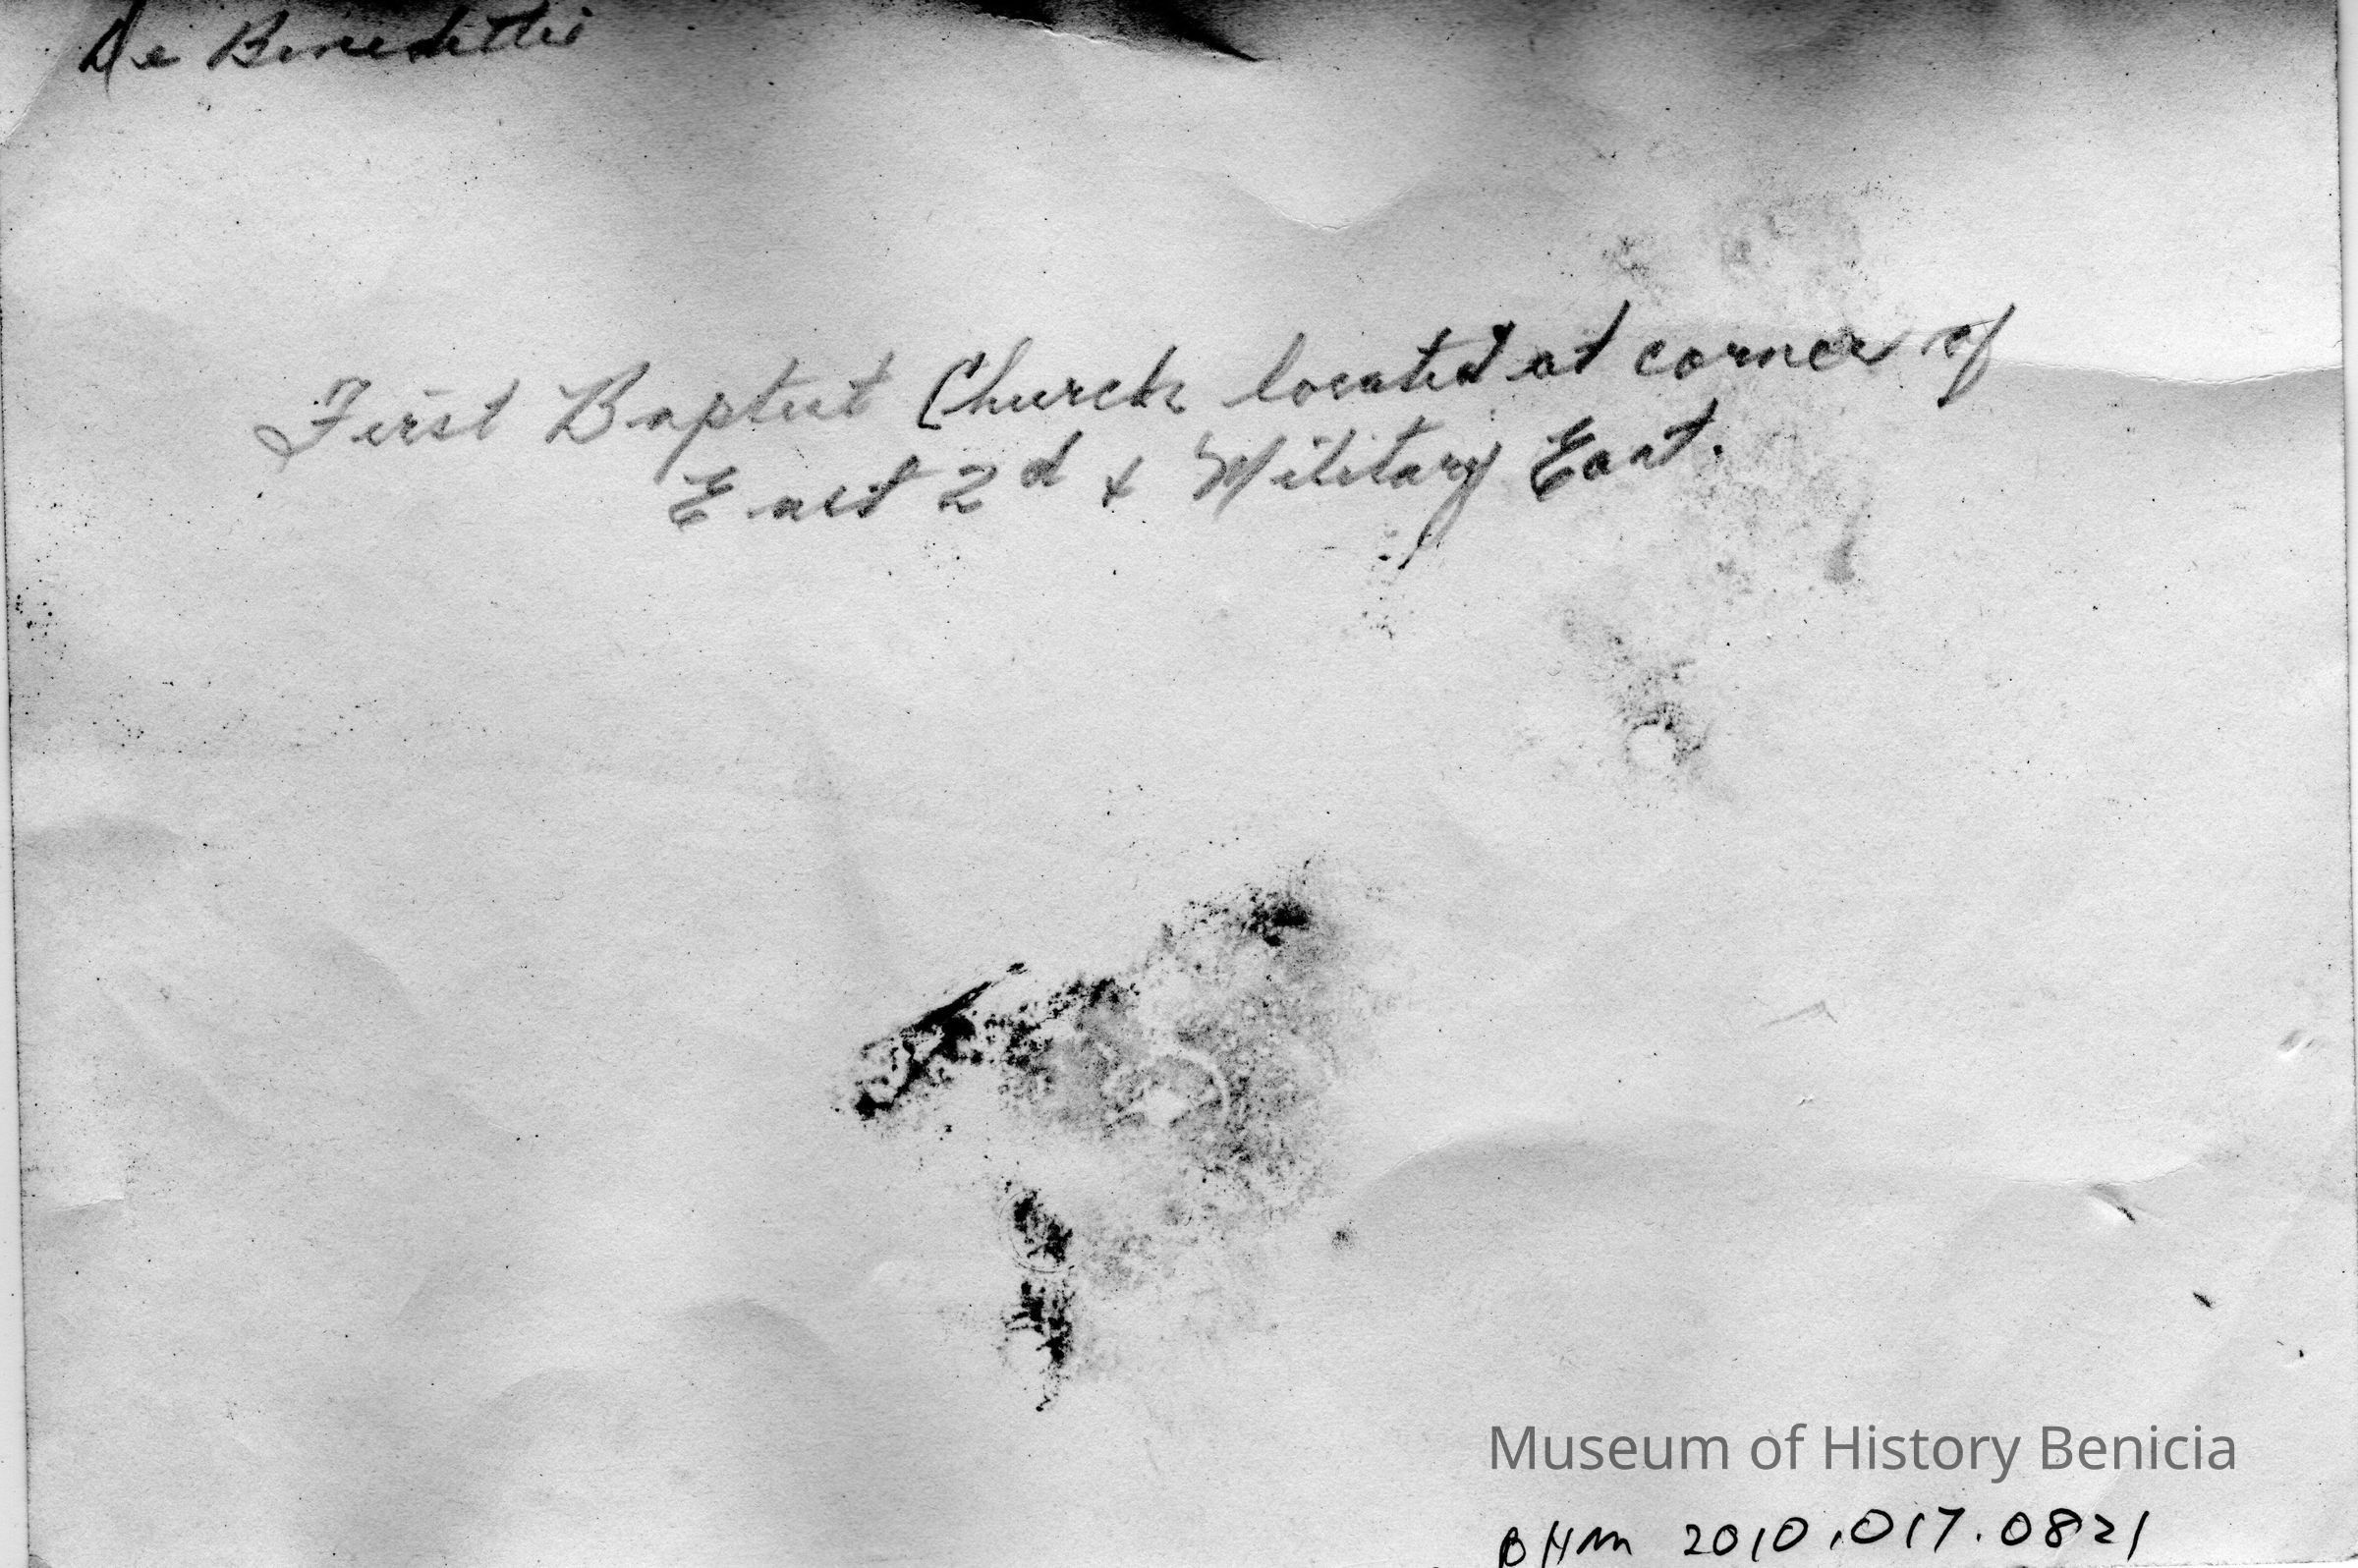 De Benedittis
First Baptist Church located at corner of
East 2d & Military East.
Museum of History Benicia
BHM 2010.017.0821